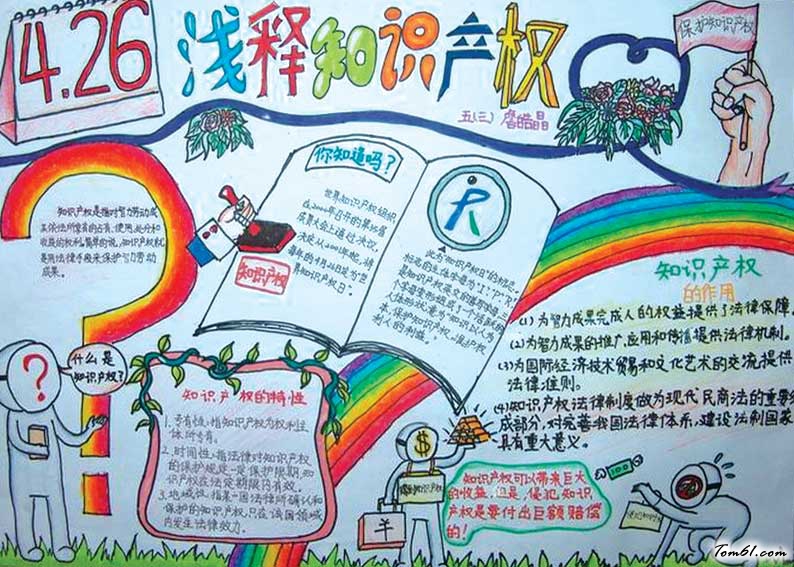 4.26
浅释知识产权
五(三) 詹皓晶
保护知识产权
你知道吗?
世界知识产权组织
在2000年召开的第35届
成员大会上通过决议,
决定从2001年起,将
每年的4月26日定为世
界知识产权日。
知识产权
此为“知识产权日”的标志,
标志的主体字母为“I”“P”“R”,
是知识产权英文的缩写字母,三
个字母变形组成了一个活跃的
人体形状,意为“知识以人为
本,保护知识产权,维护权
利人的利益。”
知识产权是指对智力劳动成
果依法所享有的占有、使用、处分和
收益的权利。简单的说,知识产权就
是用法律手段来保护智力劳动
成果。
什么是
知识产权?
?
知识产权的特性
1.专有性,指知识产权为权利主
体所专有。
2.时间性,指法律对知识产权
的保护规定一定保护限期,知
识产权在法定期限内有效。
3.地域性,指某一国法律所确认和
保护的知识产权,只在该国领域
内发生法律效力。
知识产权
的作用
(1)为智力成果完成人的权益提供了法律保障。
(2)为智力成果的推广、应用和传播提供法律机制。
(3)为国际经济技术贸易和文化艺术的交流提供
法律准则。
(4)知识产权法律制度做为现代民商法的重要组
成部分,对完善我国法律体系,建设法制国家
具有重大意义。
$
知识产权可以带来巨大
的收益,但是,侵犯知识
产权是要付出巨额赔偿
的!
Tom61.com